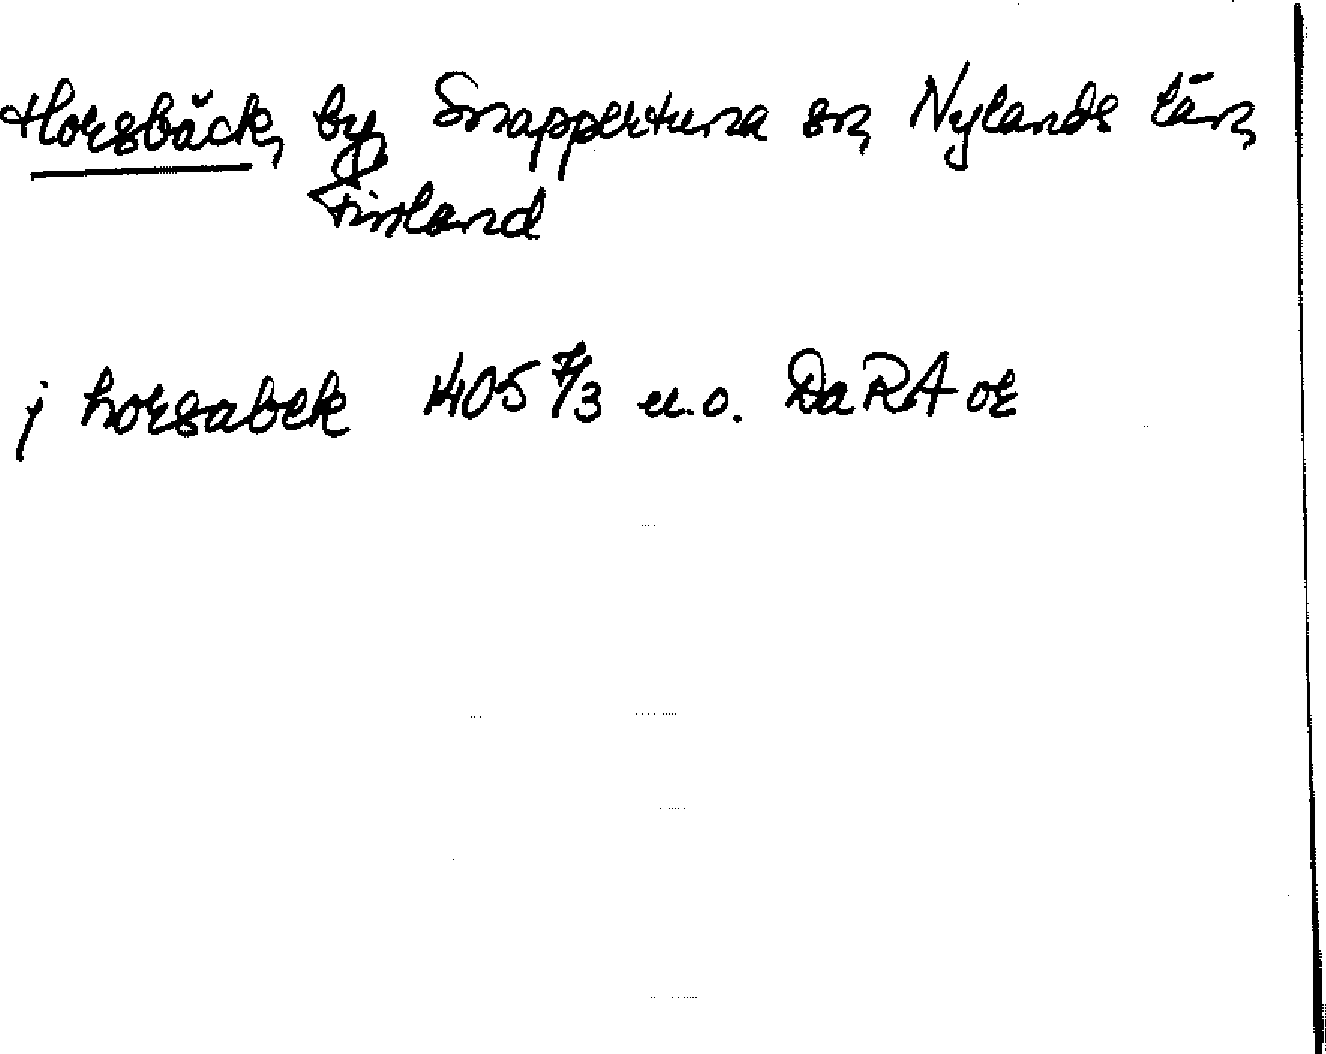 Horsbäck, by, Snappertuna sn, Nylands län,
Finland
j horsabek 1405 7/3 u.o. DaRA or